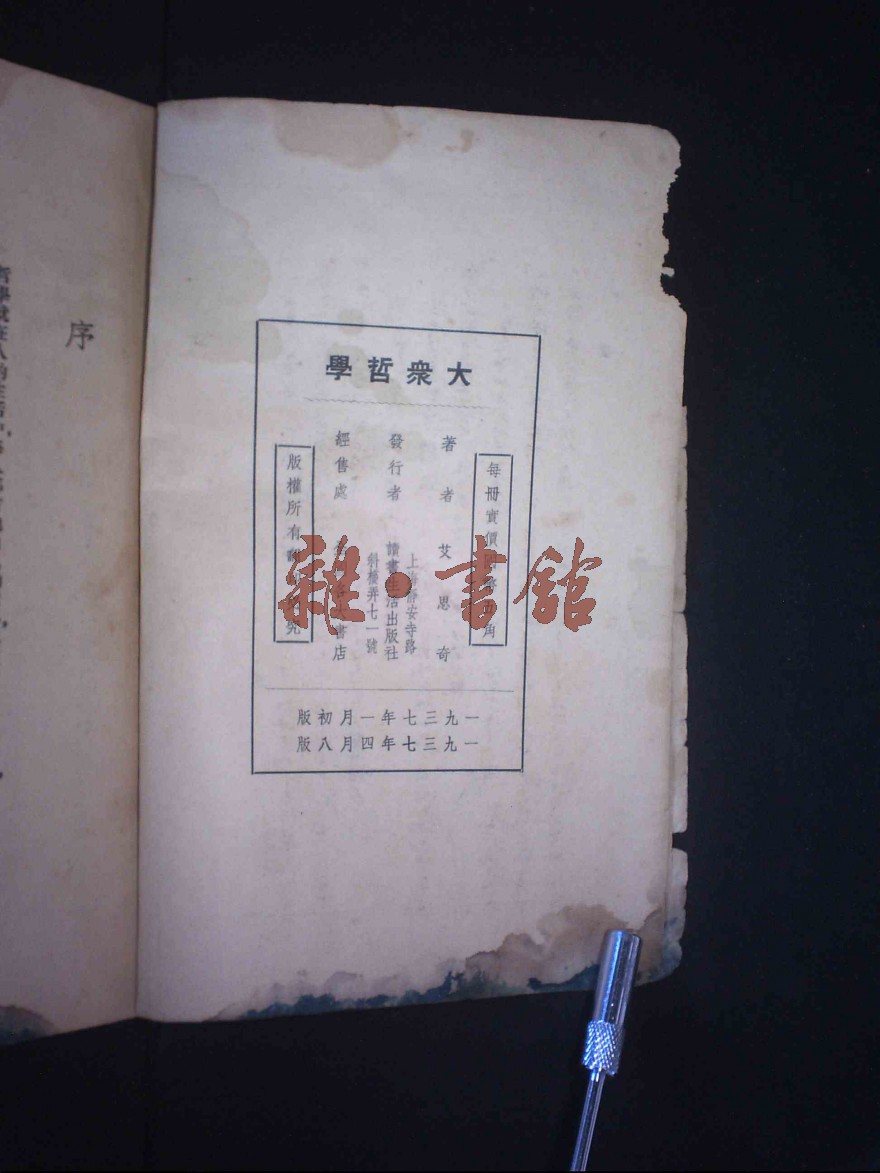 大衆哲學
每冊實價 角
著者 艾思奇
上海靜安寺路
發行者 讀書生活出版社
斜橋弄七一號
經售處 書店
版權所有 究
一九三七年一月初版
一九三七年四月八版
雜·書館
序